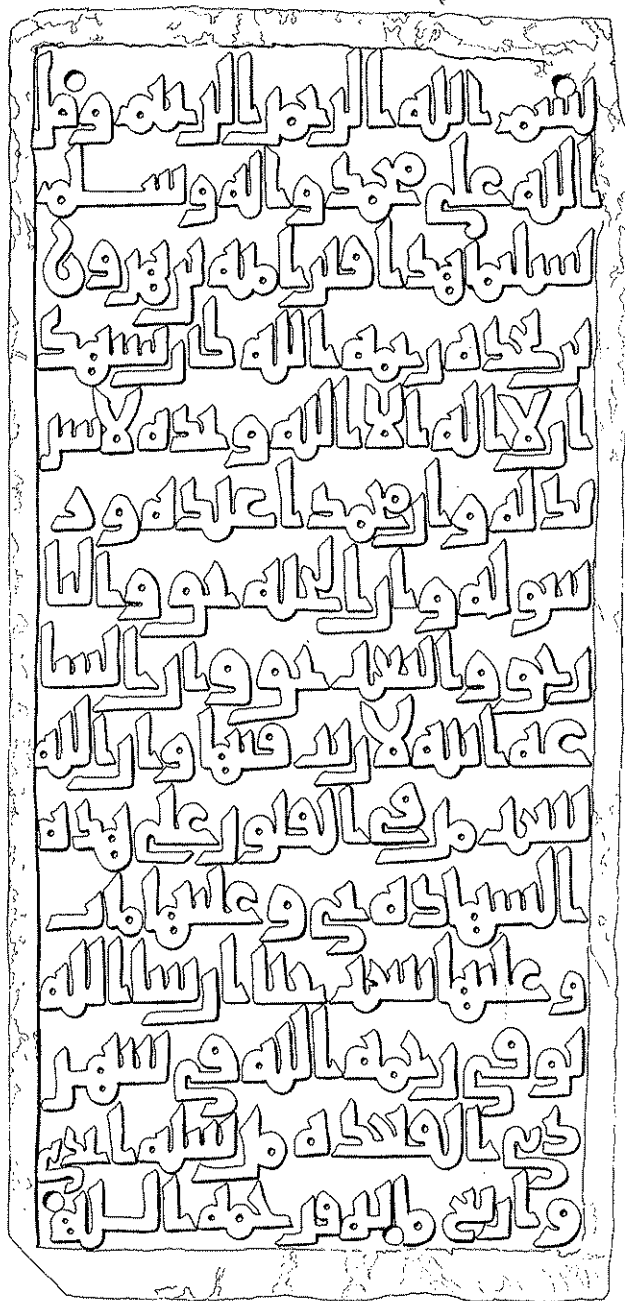 بسم الله الرحمن الرحيم وصل
الله على محمد واله وسلم
تسليما هذا قبر هرون
بن رحمه الله كان يشهد
ان لا اله الا الله وحده لا شر
يك له وان محمدا عبده ور
سوله وان الجنه حق والنا
ر حق والبعث حق وان السا
عه اتيه لا ريب فيها وان الله
يبعث من في القبور على هذه
الشهاده حيي وعليها مات
وعليها يبعث حيا ان شا الله
توفي رحمه الله في شهر
ذي القعده من سنه احدي
واربع مايه فرحمه الله